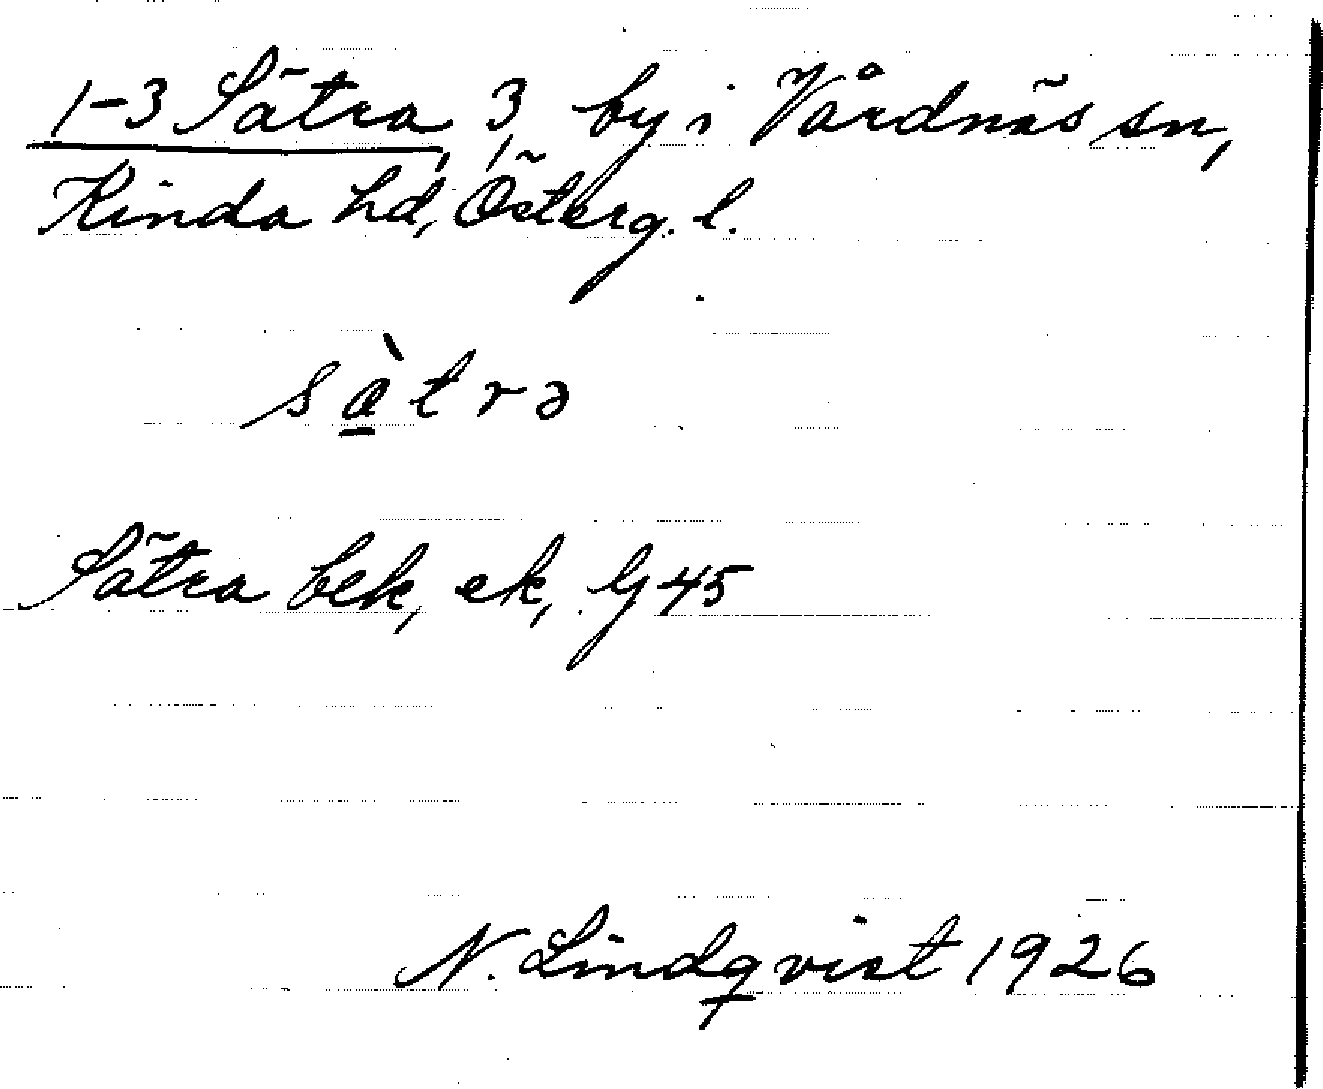 1-3 Sätra, 3, by i Vårdnäs sn,
Kinda hd, Österg. l.
sàtrə
Sätra bek, ek, Gj 45
N. Lindqvist 1926